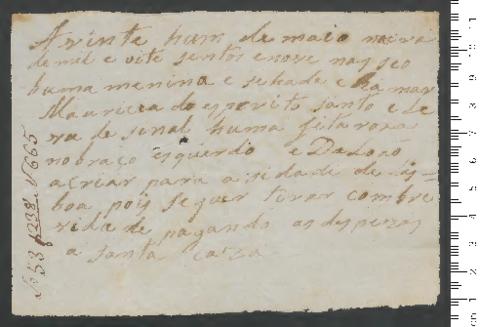 A vinte hum de maio na era
de mil e oite sentos e nove nasseo
huma menina e se hade chamar
Mauricia do esporito santo e Le
va de sinal huma fita roxa
no braço esquerdo e
a criar para a sidade de Lis=
boa pois se quer tirar com bre
vidade pagando as despezas
a santa caza